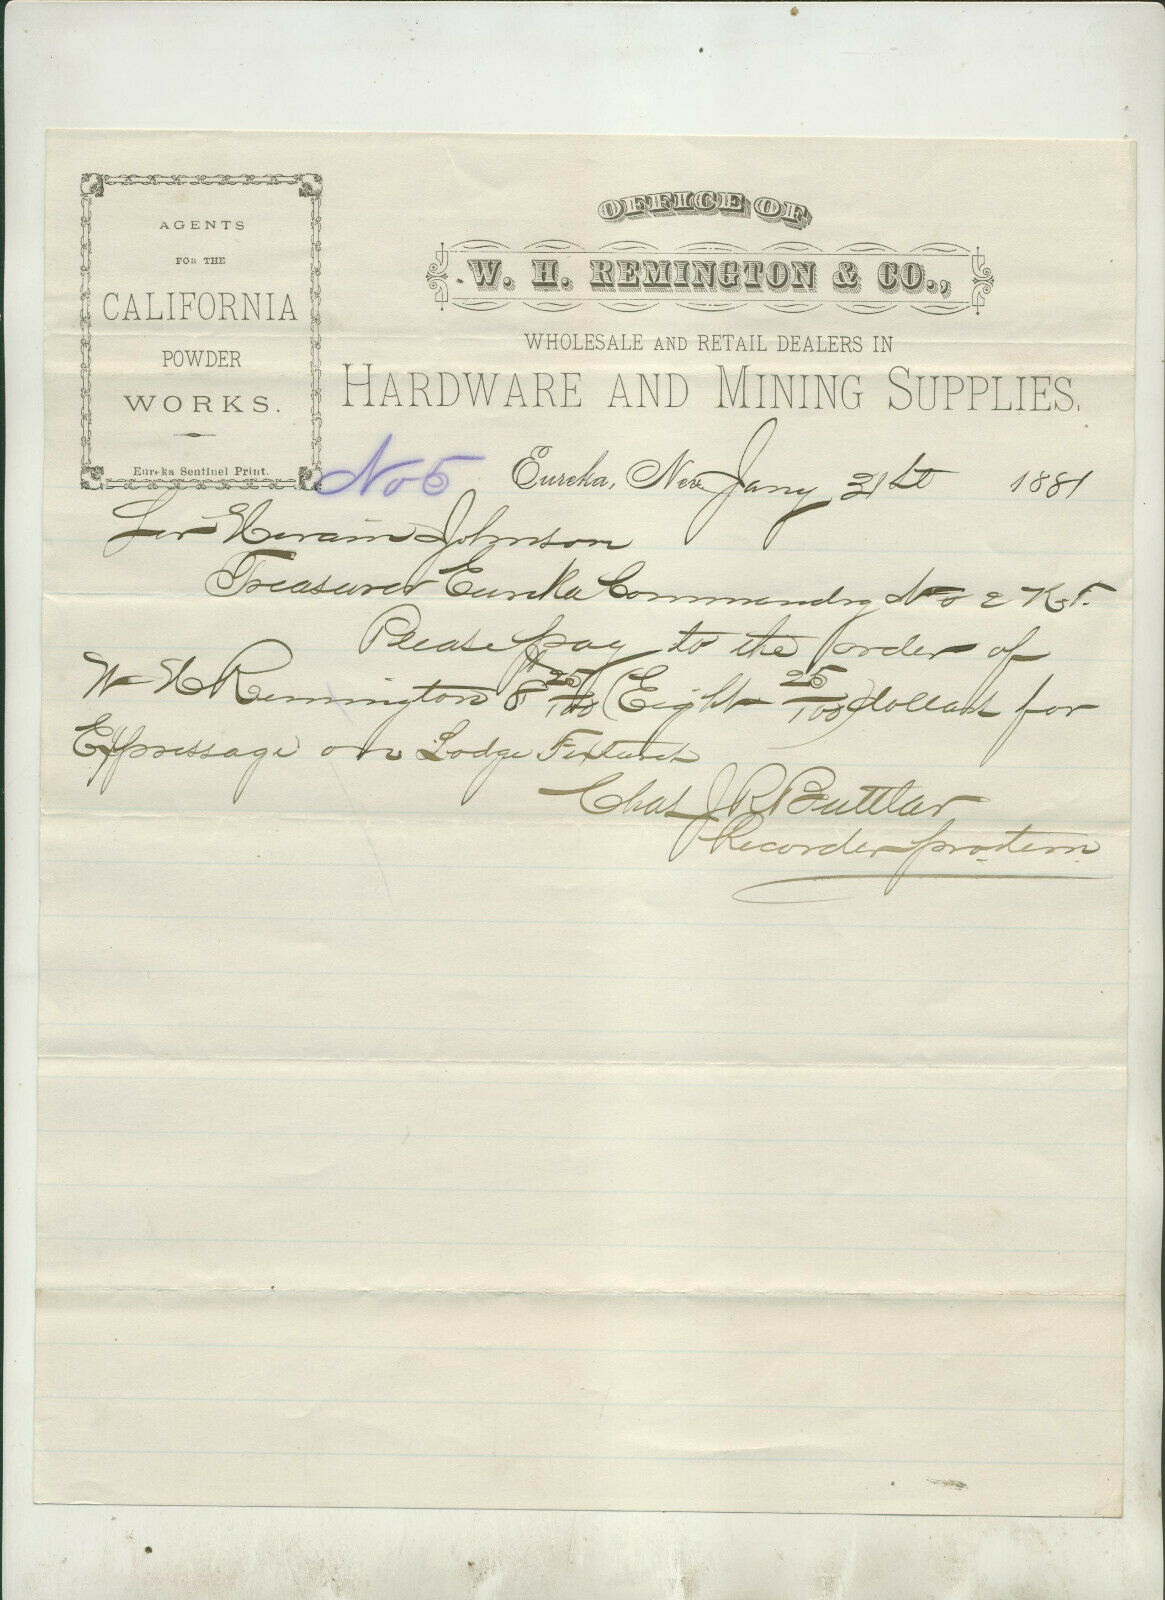 AGENTS
FOR THE
CALIFORNIA
POWDER
WORKS.
Eureka Sentinel Print.
OFFICE OF
W. H. REMINGTON & CO.,
WHOLESALE AND RETAIL DEALERS IN
HARDWARE AND MINING SUPPLIES.
No 5
Eureka, Nev. Jany 31st 1881
Sir Hiram Johnson
Treasurer Eureka Commandry No 2 K.T.
Please pay to the order of
W H Remington $8 25/100 (Eight 25/100) dollars for
Expressage on Lodge Fixtures
Chas J R Buttlar
Recorder protem